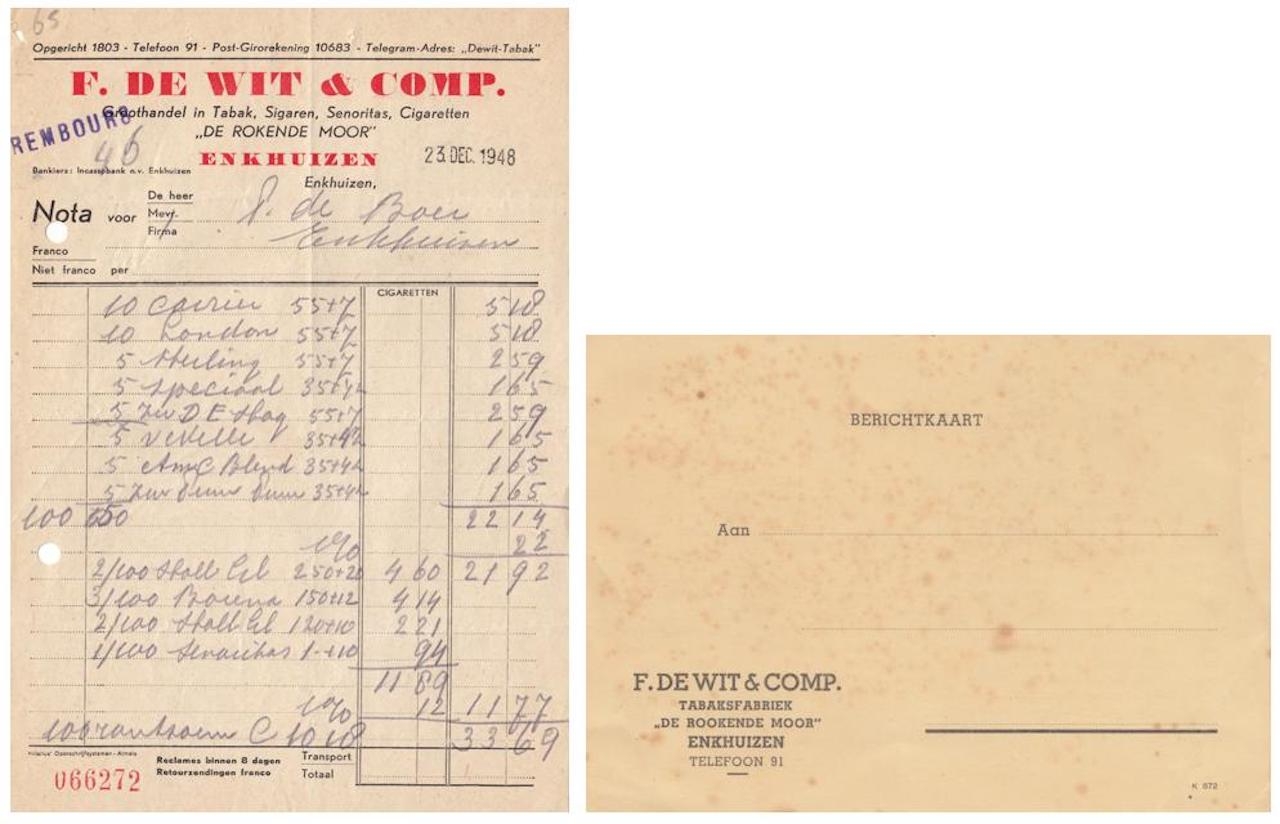 65
Opgericht 1803 - Telefoon 91 - Post-Girorekening 10683 - Telegram-Adres: „Dewit-Tabak"
F. DE WIT & COMP.
Groothandel in Tabak, Sigaren, Senoritas, Cigaretten
REMBOURS
„DE ROKENDE MOOR"
46
ENKHUIZEN
23 DEC. 1948
Bankiers: Incassobank n.v. Enkhuizen
Enkhuizen,
De heer
Nota voor Mevr. P. de Boer
Firma Enkhuizen
Franco
Niet franco per
CIGARETTEN
10 55+7 5 18
10 London 55+7 5 18
5 Sterling 55+7 2 59
5 Speciaal 35+4½ 1 65
5 D E Shag 55+7 2 59
5 35+4½ 1 65
5 Blend 35+4½ 1 65
5 35+4½ 1 65
100 22 14
1% 22
2/100 250+20 4 60 21 92
3/100 150+12 4 14
2/100 120+10 2 21
1/100 Senoritas 94
11 89
1% 12 11 77
100 rantsoen C 10 18 33 69
Reclames binnen 8 dagen
Retourzendingen franco
Transport
Totaal
066272
BERICHTKAART
Aan
F. DE WIT & COMP.
TABAKSFABRIEK
„DE ROOKENDE MOOR"
ENKHUIZEN
TELEFOON 91
K 872